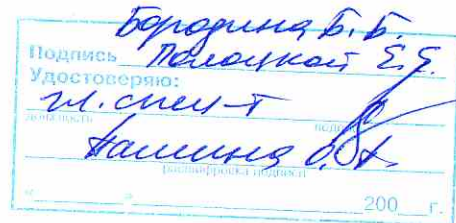 Бородина Б. Б.
Подпись Полоцкой Е. Е.
Удостоверяю:
гл. спец-т
должность подпись
расшифровка подписи
«___»___________200__г.